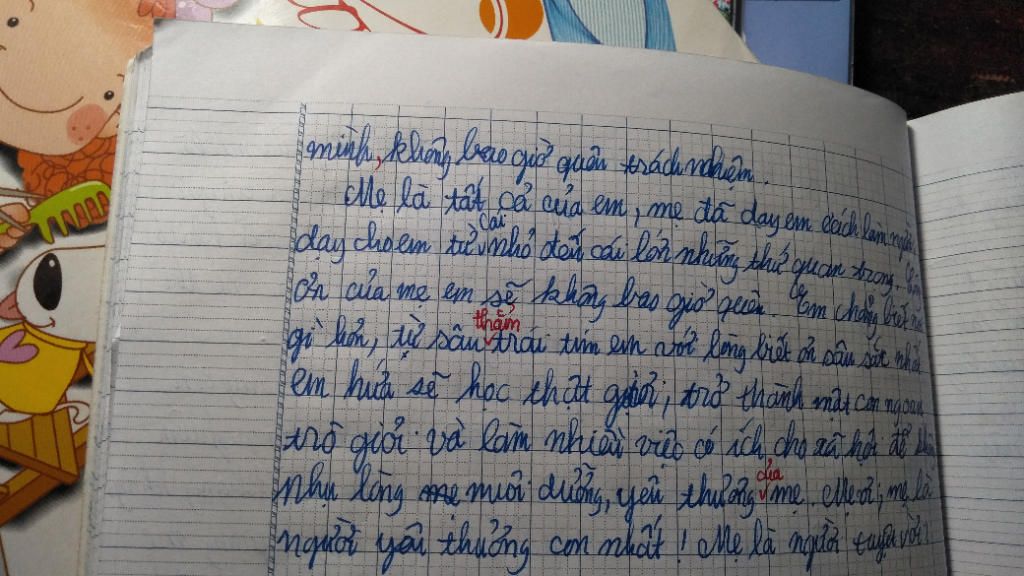 minh, không bao giờ quên trách nhiệm.
Mẹ là tất cả của em, mẹ đã dạy em cách làm người,
dạy cho em từ cái nhỏ đến cái lớn những thứ quan trọng. Công
ơn của mẹ em sẽ không bao giờ quên. Em chẳng biết nói
gì hơn, từ sâu thẳm trái tim em với lòng biết ơn sâu sắc nhất
em hứa sẽ học thật giỏi, trở thành một con ngoan
trò giỏi và làm nhiều việc có ích cho xã hội để
lòng nuôi dưỡng, yêu thương của mẹ. Mẹ ơi, mẹ là
người yêu thương con nhất! Mẹ là người tuyệt vời